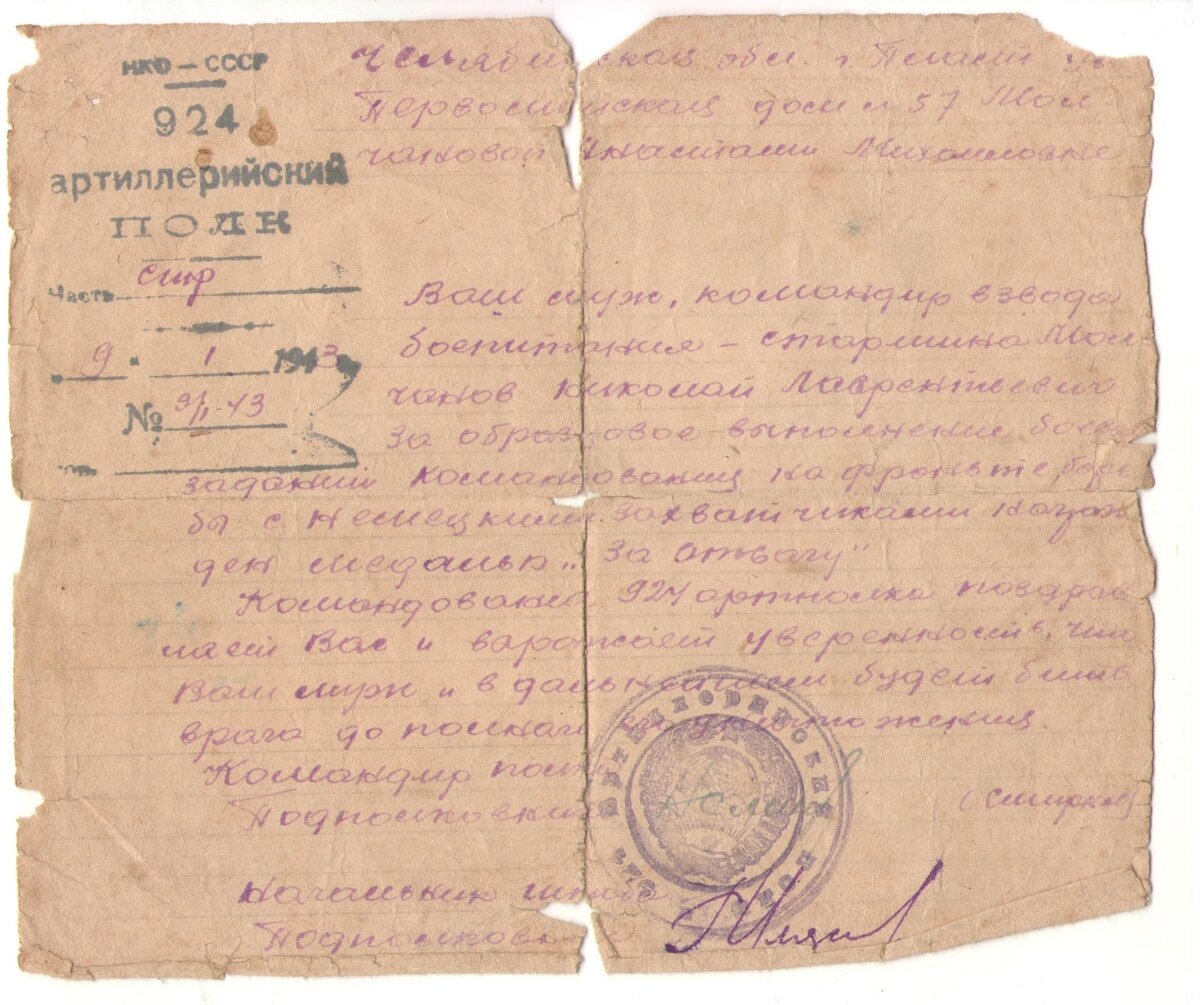 НКО — СССР
924
артиллерийский
ПОЛК
Часть стр
9 " 1 1943
№ 9/I-43
Челябинская обл. г. Пласт ул
Первомайская дом № 57 Мол-
чановой Анастасии Михайловне
Ваш муж, командир взвода
боепитания – старшина Мол-
чанов Николай Лаврентьевич
за образцовое выполнение боев
заданий командования на фроньте борь
бы с немецкими захватчиками награж
ден медалью „За отвагу"
Командование 924 артполка поздрав
ляет Вас и варажает уверенность, что
Ваш муж и в дальнейшем будет бить
врага до полнаго его уничтожения.
Командир полка
Подполковник
Начальник штаба
Подполковник
924 Артиллерийский полк